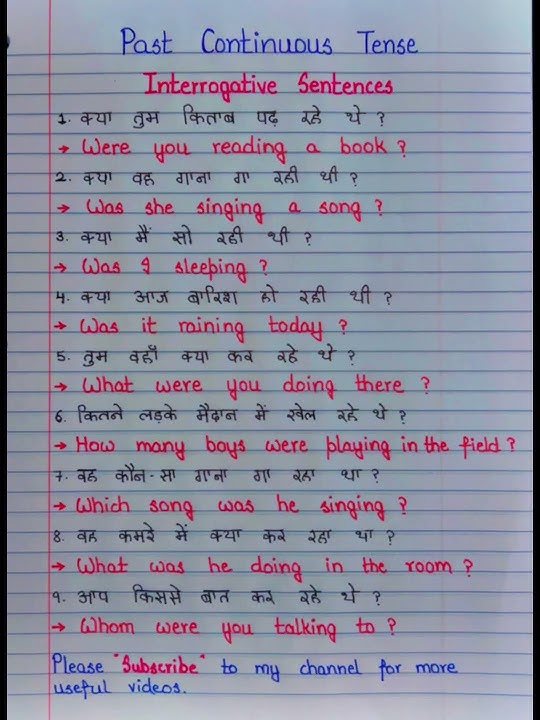 Past Continuous Tense
Interrogative Sentences
1. क्या तुम किताब पढ़ रहे थे ?
→ Were you reading a book ?
2. क्या वह गाना गा रही थी ?
→ Was she singing a song ?
3. क्या मैं सो रही थी ?
→ Was I sleeping ?
4. क्या आज बारिश हो रही थी ?
→ Was it raining today ?
5. तुम वहाँ क्या कर रहे थे ?
→ What were you doing there ?
6. कितने लड़के मैदान में खेल रहे थे ?
→ How many boys were playing in the field ?
7. वह कौन-सा गाना गा रहा था ?
→ Which song was he singing ?
8. वह कमरे में क्या कर रहा था ?
→ What was he doing in the room ?
9. आप किससे बात कर रहे थे ?
→ Whom were you talking to ?
Please "Subscribe" to my channel for more
useful videos.